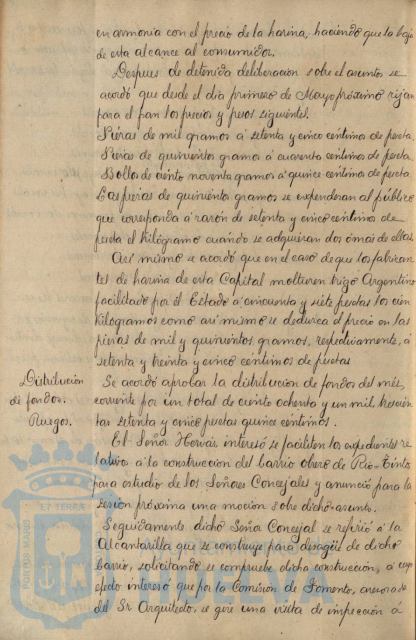 en armonia con el precio de la harina, haciendo que la baja
de esta alcance al consumidor.
Despues de detenida deliberacion sobre el asunto se
acordó que desde el dia primero de Mayo próximo rijan
para el pan los precios y pesos siguientes.
Piezas de mil gramos á setenta y cinco centimos de peseta.
Piezas de quinientos gramos á cuarenta centimos de peseta
Bollos de ciento noventa gramos á quince centimos de peseta
Las piezas de quinientos gramos se expenderan al público
que corresponda á razón de setenta y cinco centimos de
peseta el Kilógramo cuando se adquieran dos ó mas de ellas.
Asi mismo se acordó que en el caso de que los fabrican
tes de harina de esta Capital molturen trigo Argentino
facilitado por el Estado á cincuenta y siete pesetas los cien
Kilogramos como asi mismo se deduzca el precio en las
piezas de mil y quinientos gramos, respectivamente, á
setenta y treinta y cinco centimos de pesetas
Distribución
de fondos.
Ruegos.
Se acordó aprobar la distribucion de fondos del mes
corriente por un total de ciento ochenta y un mil trescien
tas setenta y cinco pesetas quince centimos.
El Señor Hervás interesó se faciliten los expedientes re
lativos á la construccion del barrio obrero de Rio-Tinto
para estudio de los Señores Concejales y anunció para la
sesión próxima una mocion sobre dicho asunto.
Seguidamente dicho Señor Concejal se refirió á la
Alcantarilla que se construye para desagüe de dicho
barrio, solicitando se compruebe dicha construccion, á cuyo
efecto interesó que por la Comision de Fomento, asesorada
del Sr. Arquitecto, se gire una visita de inspección á
PORTUS MARIS ET TERRÆ
HUELVA